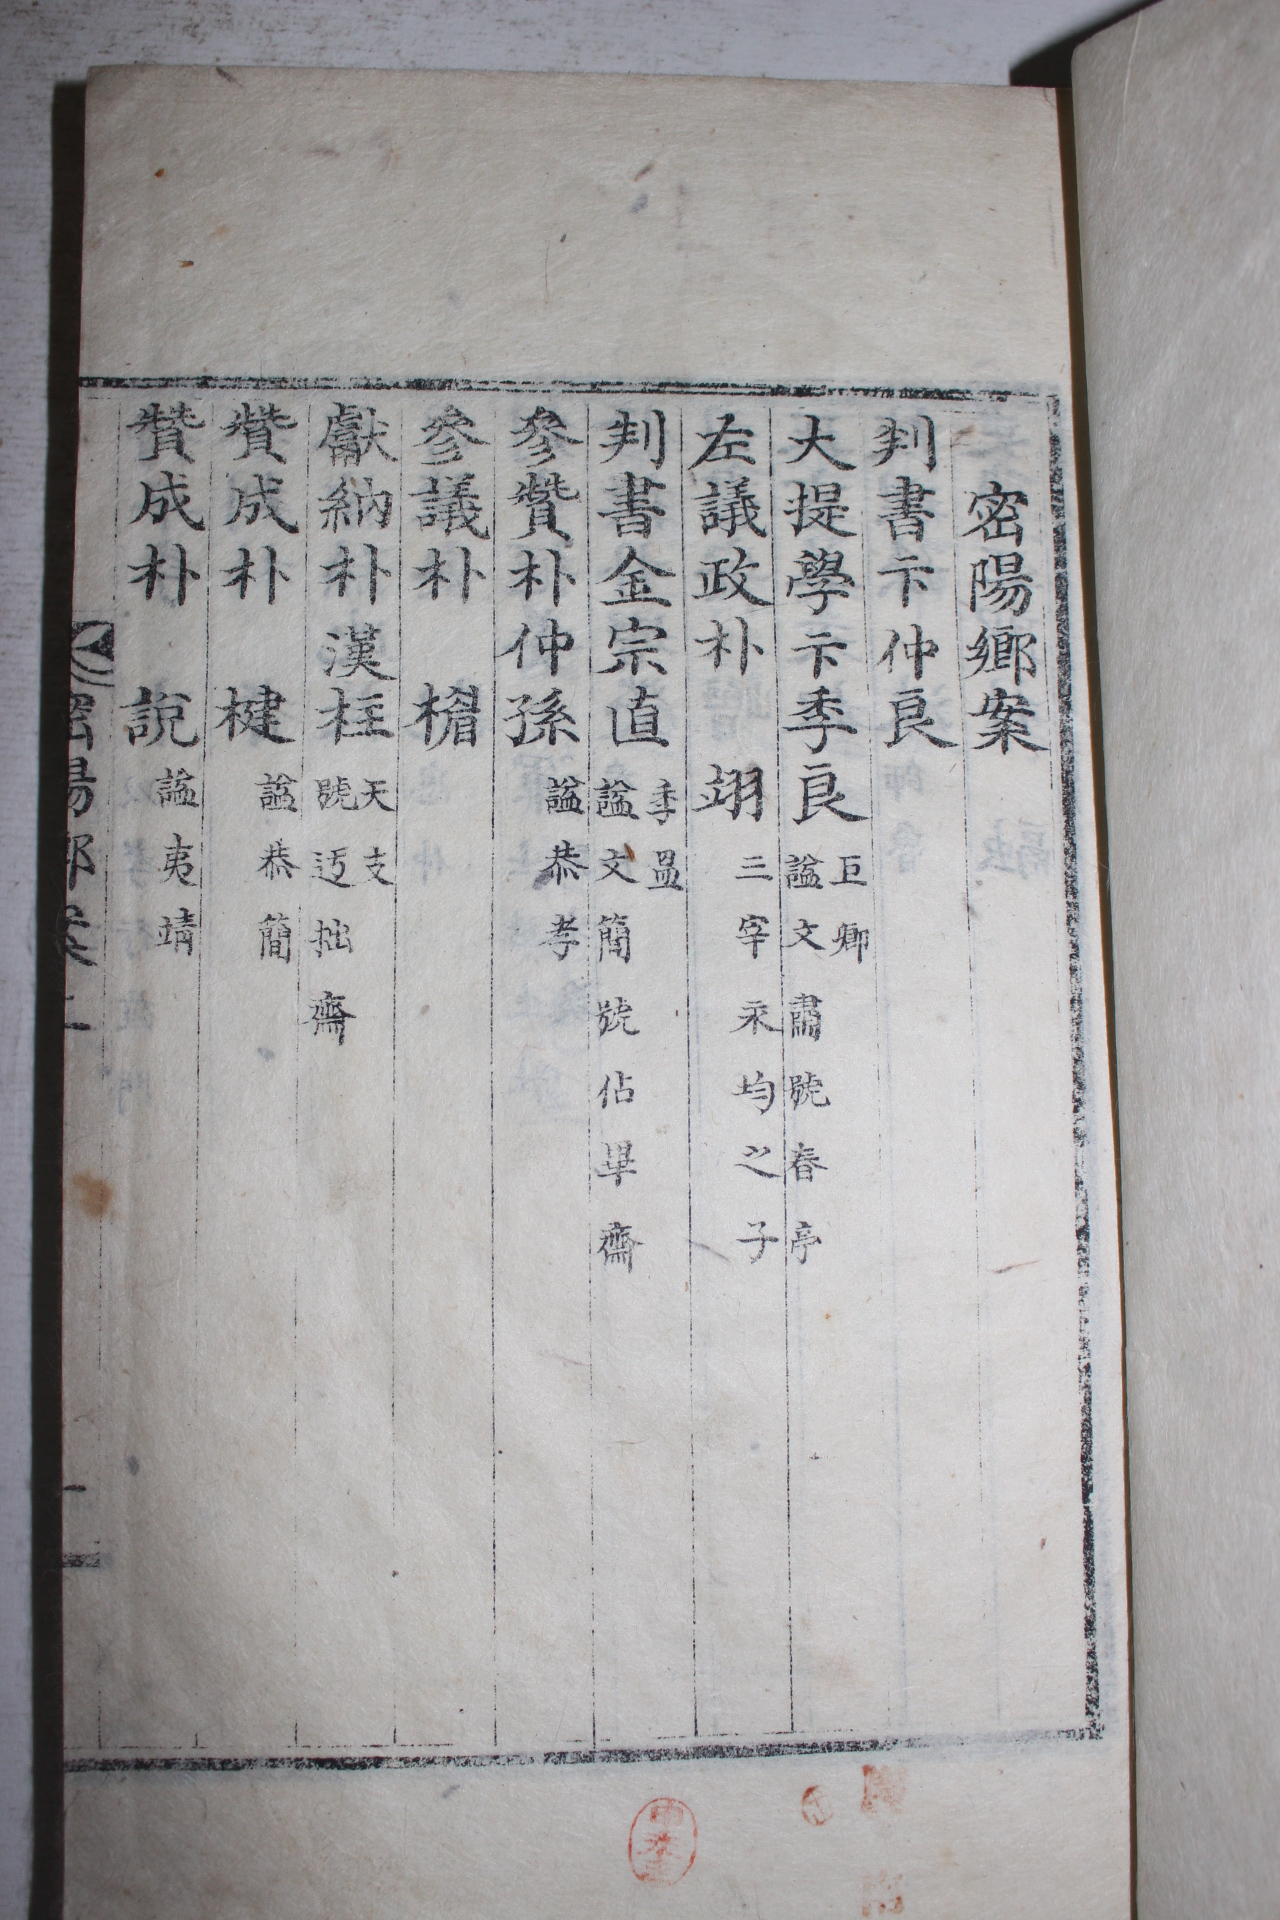 密陽鄉案
判書卞仲良
大提學卞季良 巨卿 謚文肅號春亭
左議政朴 翊 三宰永均之子
判書金宗直 季昷 謚文簡號佔畢齋
參贊朴仲孫 謚恭孝
參議朴 樯
獻納朴漢柱 天支 號迃拙齋
贊成朴 楗 謚恭簡
贊成朴 說 謚夷靖
密陽鄉案上
一